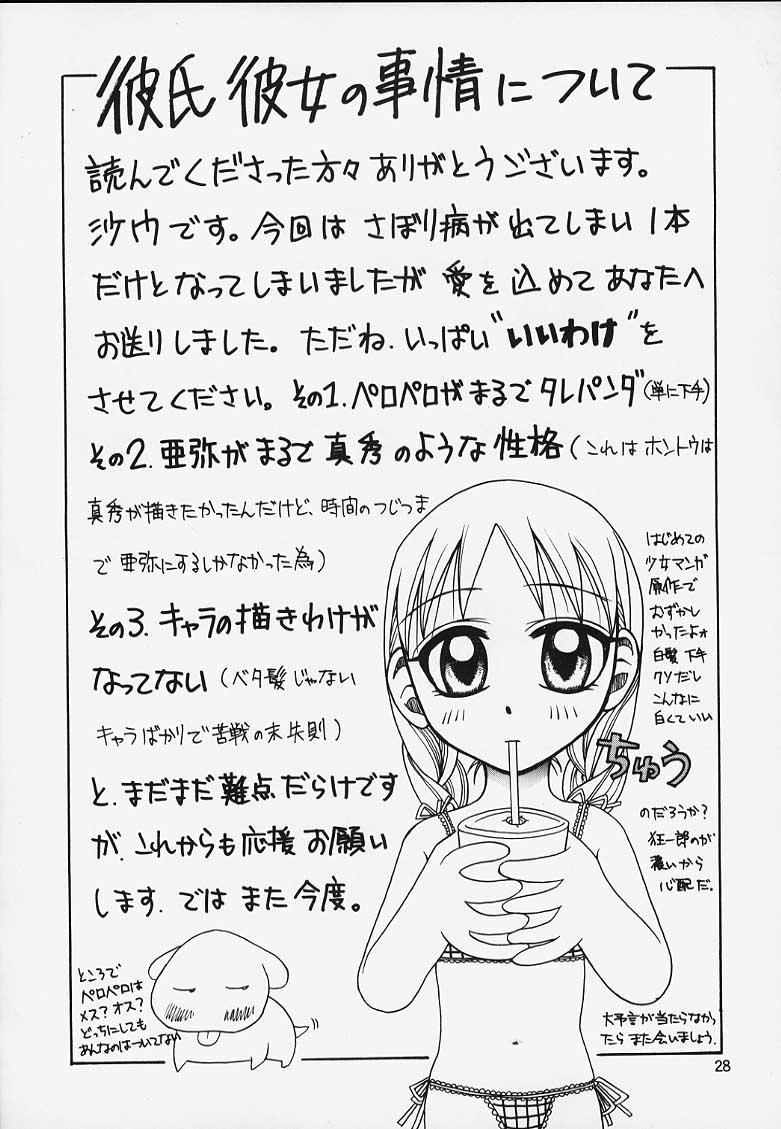 彼氏彼女の事情について
読んでくださった方々ありがとうございます。
沙ウです。今回は さぼり病が出てしまい 1本
だけとなってしまいましたが 愛を込めてあなたへ
お送りしました。ただね、いっぱい“いいわけ”を
させてください。その1.ペロペロがまるでタレパンダ(単に下手)
その2.亜弥がまるで真秀のような性格(これは ホントウは
真秀が描きたかったんだけど、時間のつじつま
で 亜弥にするしかなかった為)
その3.キャラの描きわけが
なってない(ベタ髪じゃない
キャラばかりで苦戦の末失則)
と、まだまだ難点だらけです
が、これからも応援お願い
します。では また今度。
はじめての
少女マンガ
原作で
むずかし
かったよォ
白髪 下手
クソだし
こんなに
白くていい
のだろうか?
狂一郎のが
濃いから
心配だ。
ちゅう
ところで
ペロペロは
メス?オス?
どっちにしても
あんなのはついてない
大予言が当たらなかっ
たら また会いましょう.
28